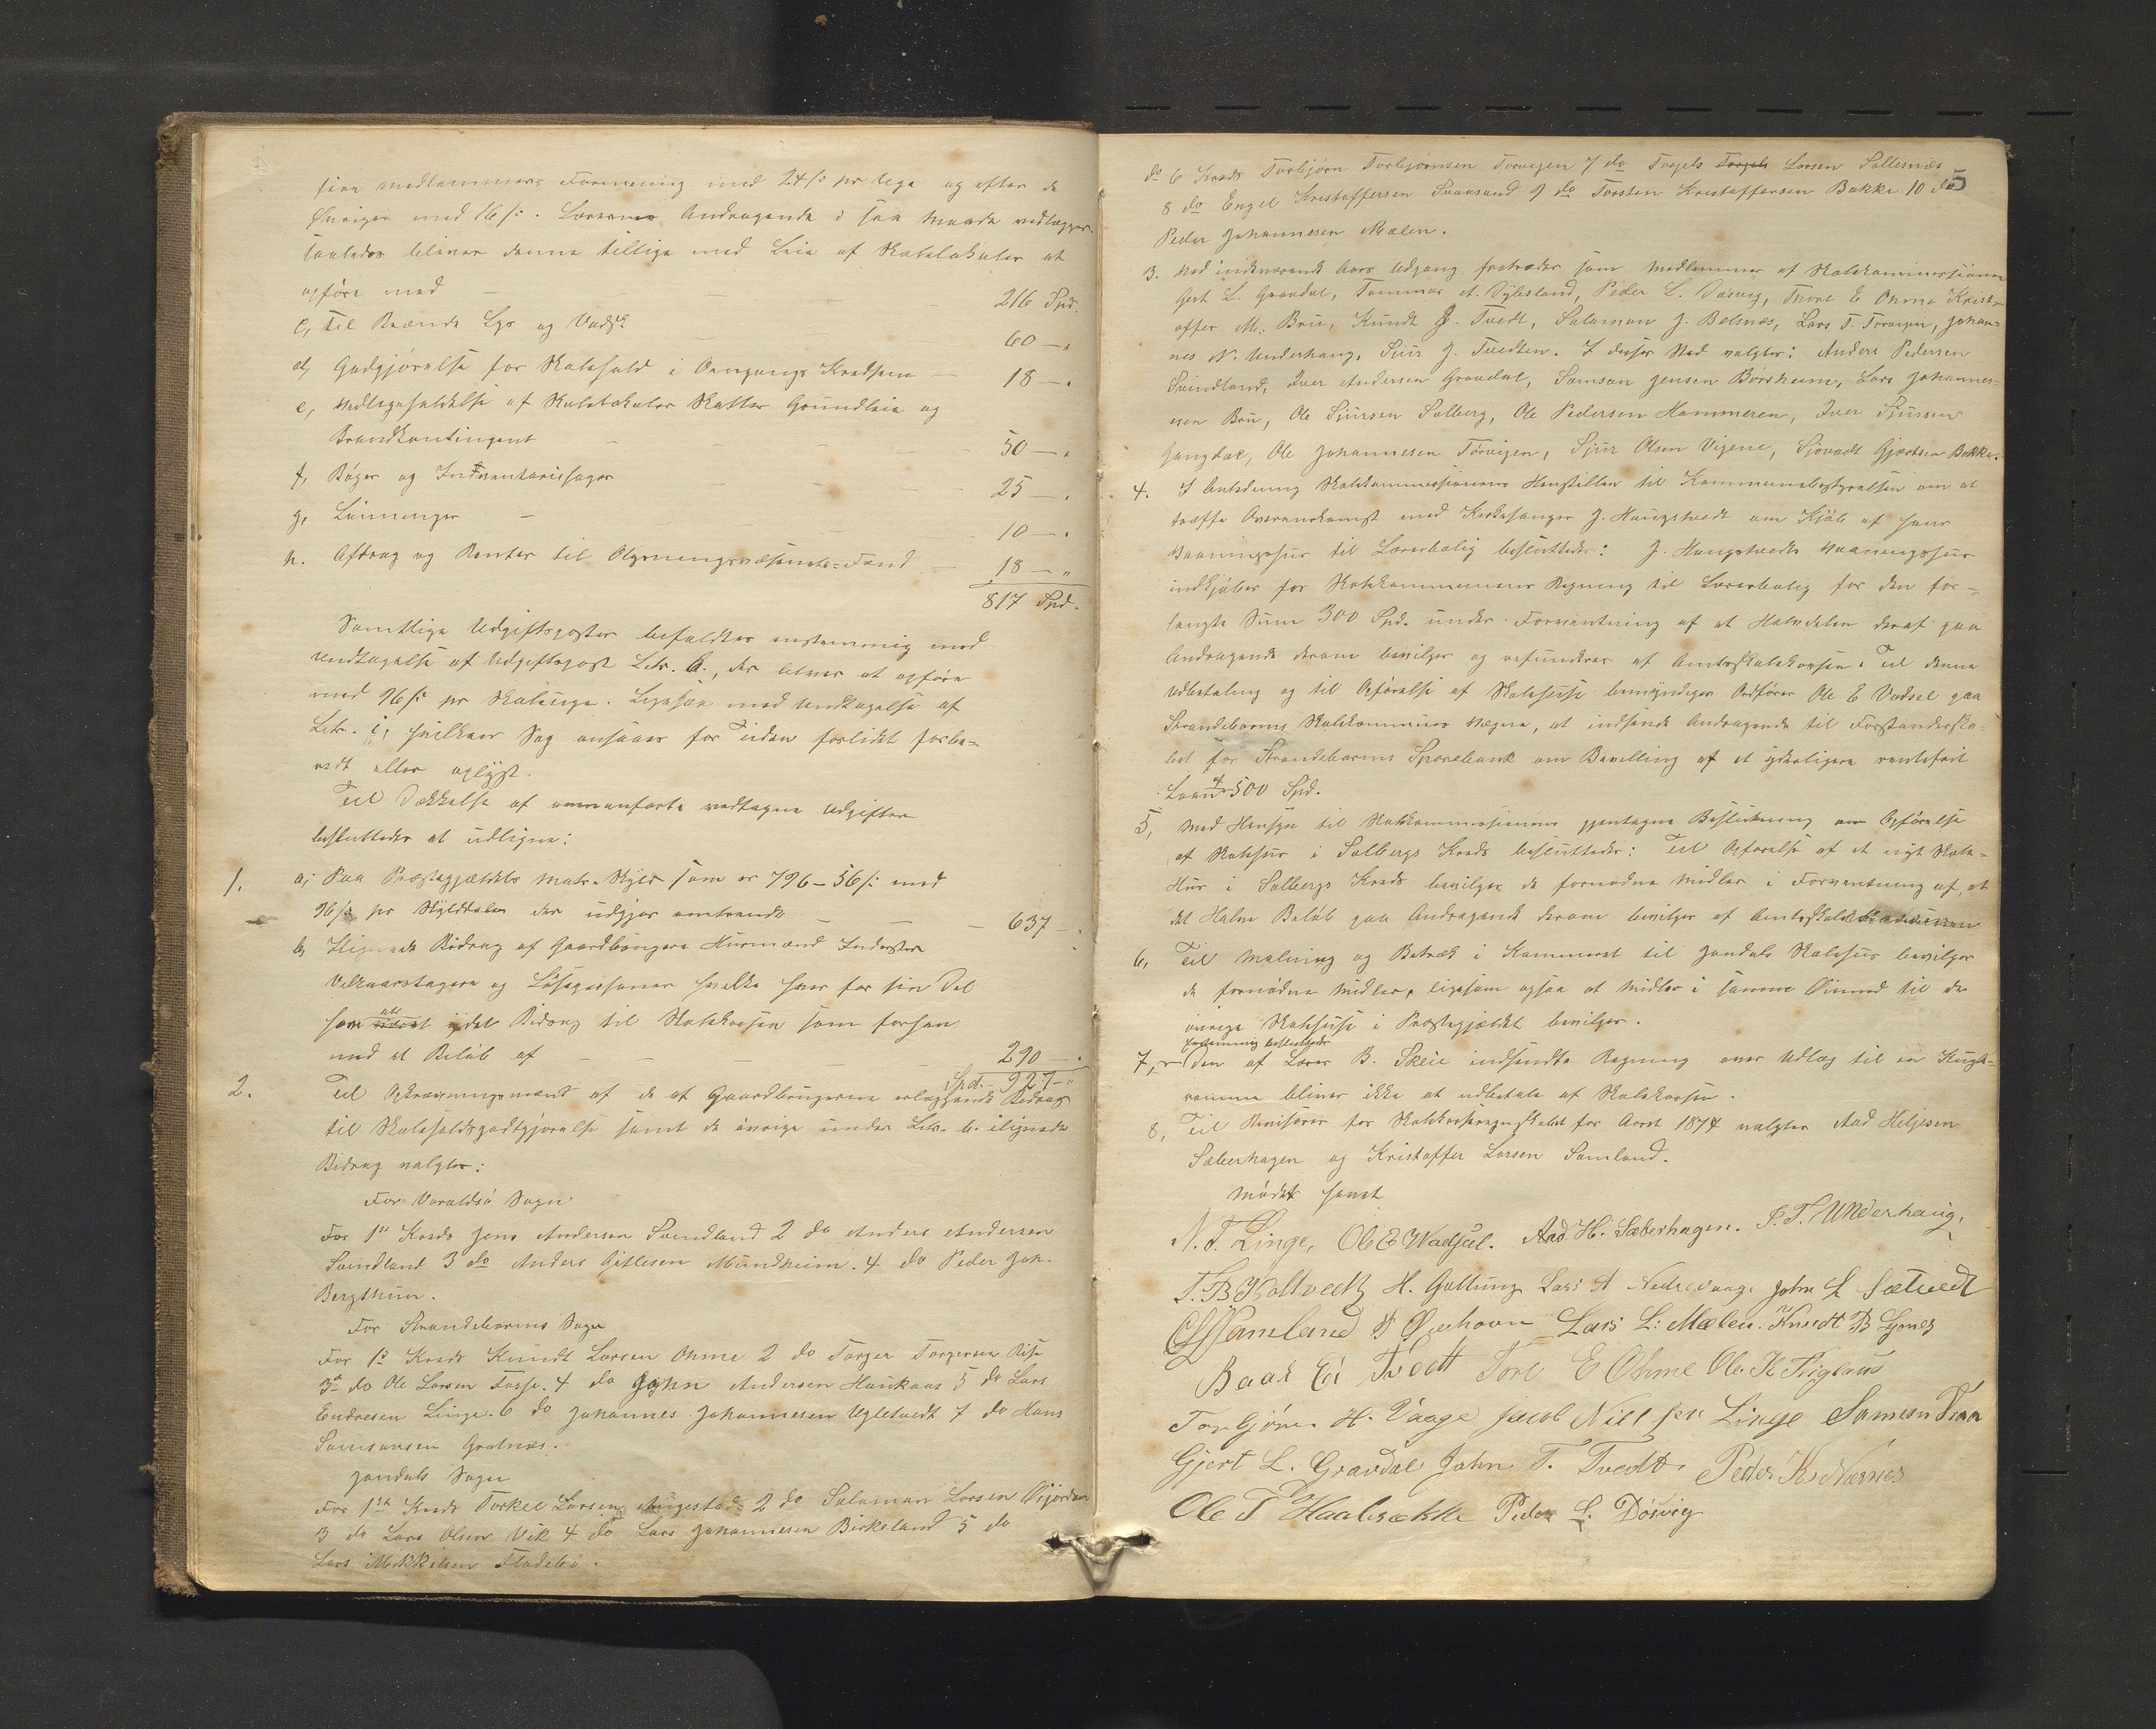 sine medlemmers Formening med 24 s: pr Uge og efter de
Øvriges med 16 s:. Lærernes Andragende i saa Maade vedlægges.
saaledes bliver denne tillige med Leie af Skolelokaler at
opføre med 216 Spd.
c, Til Brænde Lys og Vadsk 60 — "
d, Godtgjørelse for Skolehold i Omgangs Kredsene — 18 — "
e, Vedligeholdelse af Skolelokaler Skatter Grundleie og
Brandkontingent 50 — "
f, Bøger og Inventariesager 25 — "
g, Lønninger — 10 — "
h. Afdrag og Renter til Oplysningsvæsenets-Fond — 18 — "
817 Spd.
Samtlige Udgiftsposter befaldtes enstemmig med
Undtagelse af Udgiftspost Litr. b., der bliver at opføre
med 96 s: pr Skoleuge. Ligesaa med Undtagelse af
Litr. i, hvilken Sag ansaaes for Tiden forlidet forbe-
redt eller oplyst.
Til Dækkelse af ovenanførte vedtagne Udgifter
besluttedes at udligne:
1. a, Paa Præstegjældets Matr. Skyld som er 796 - 56 s: med
96 s: pr Skylddaler der udgjør omtrendt — — 637 — "
b, Ilignede Bidrag af Gaardbrugere Husmænd Inderster
Vilkaarstagere og Løspersoner hvilke hver for sin Del
som at yde Bidrag til Skolekassen som forhen
med et Beløb af — — — 290 — "
Spd. - 927 - "
2. Til Opkrævningsmænd af de af Gaardbrugerne erlæggende Bidrag
til Skoleholdsgodtgjørelse samt de øvrige under Litr. b. ilignede
Bidrag valgtes:
For Varaldsø Sogn
For 1ste Kreds Jens Andersen Svindland 2 do Anders Andersen
Svindland 3 do Anders Gitlesen Mundheim. 4 do Peder Joh.
Bergthun.
For Strandebarms Sogn
For 1ste Kreds Knudt Larsen Ohme 2 do Torger Torgersen Risa
3de do Ole Larsen Fosse. 4 do John Andersen Haukaas 5 do Lars
Endresen Linge. 6 do Johannes Johannesen Ugletvedt 7 do Hans
Samsonsen Grotnæs.
Jondals Sogn
For 1ste Kreds Torkel Larsen Augestad 2 do Salamon Larsen Øijorden
3 do Lars Olsen Vik 4 do Lars Johannesen Birkeland 5 do
Lars Mikkelsen Fladebø.
5
do 6 Kreds Torbjørn Torbjørnsen Torvigen 7 do Torgils Larsen Sollesnæs
8 do Engel Kristoffersen Svaasand 9 do Torsten Kristoffersen Bakke 10 do
Peder Johannesen Mælen.
3. Ved indeværende Aars Udgang fratræder som Medlemmer af Skolekommissionen
Gert L. Gravdal, Tommas A. Dysland, Peder L. Døsvig, Thore E Ohme Krist-
offer M. Bru, Knudt J. Tvedt, Salamon J. Belsnæs, Lars T. Torvigen, Johan-
nes N. Underhaug, Sjur J. Tvedten. I deres Sted valgtes: Anders Pedersen
Svindland, Iver Andersen Gravdal, Samson Jensen Børsheim, Lars Johannes-
esen Bru, Ole Sjursen Solberg, Ole Pedersen Hammeren, Iver Sjursen
Gangdal, Ole Johannesen Torvigen, Sjur Olsen Vigene, Sjovadt Gjertsen Bakke.
4. I Anledning Skolekommissionens Henstillen til Kommunebestyrelsen om at
træffe Overenskomst med Kirkesanger J. Haugstvedt om Kjøb af hans
Vaaningshus til Lærerbolig besluttedes: J. Haugstvedts Vaaningshus
indkjøbes for Skolekommunens Regning til Lærerbolig for den for-
langte Sum 300 Spd. under Forventning af at Halvdelen deraf paa
Andragende derom bevilges og refunderes af Amtsskolekassen. Til denne
Udbetaling og til Opførelse af Skolehuse bemyndiges Ordfører Ole E Vadsel paa
Strandebarms Skolekommunes Vegne, at indsende Andragende til Forstanderska-
bet for Strandebarms Sparebank om Bevilling af et yderligere rentefrit
Laan 500 Spd.
5, Med Hensyn til Skolekommissionens gjentagne Beslutning om Opførelse
af Skolehus i Solbergs Kreds besluttedes: Til Opførelse af et nyt Skole-
Hus i Solbergs Kreds bevilges de fornødne Midler i Forventning af, at
det Halve Beløb paa Andragende derom bevilges af Amtsskolekassen
6, Til Maling og Betræk i Kammeret til Jondals Skolehus bevilges
de fornødne Midler, ligesom ogsaa at Midler i samme Øiemed til de
øvrige Skolehuse i Præstegjældet bevilges.
Enstemmig besluttedes
7, Den af Lærer B. Skeie indsendte Regning over Udlæg til en Kugle-
ramme bliver ikke at udbetale af Skolekassen.
8, Til Revisorer for Skolekasseregnskabet for Aaret 1874 valgtes Aad Heljesen
Sæberhagen og Kristoffer Larsen Samland.
Mødet hævet
N. J. Linge, Ole E Wadsel. Aad. H. Sæberhagen. J. T. Underhaug,
T. B Holtvedt H. Gultung Lars A Nedrevaage John S Sætvedt
C L Samland Øyehovn Lars L: Mælen. Knudt B Lynes
Baar Ei Tvedt Tore E Ohme Ole K Tiglaus
Torbjørn H. Vaage Jacob Nilssen Linge Samson Traa
Gjert L. Gravdal John T. Tvedt Peder Ks Nærnes
Ole T Haabrekke Peder L. Døsvig